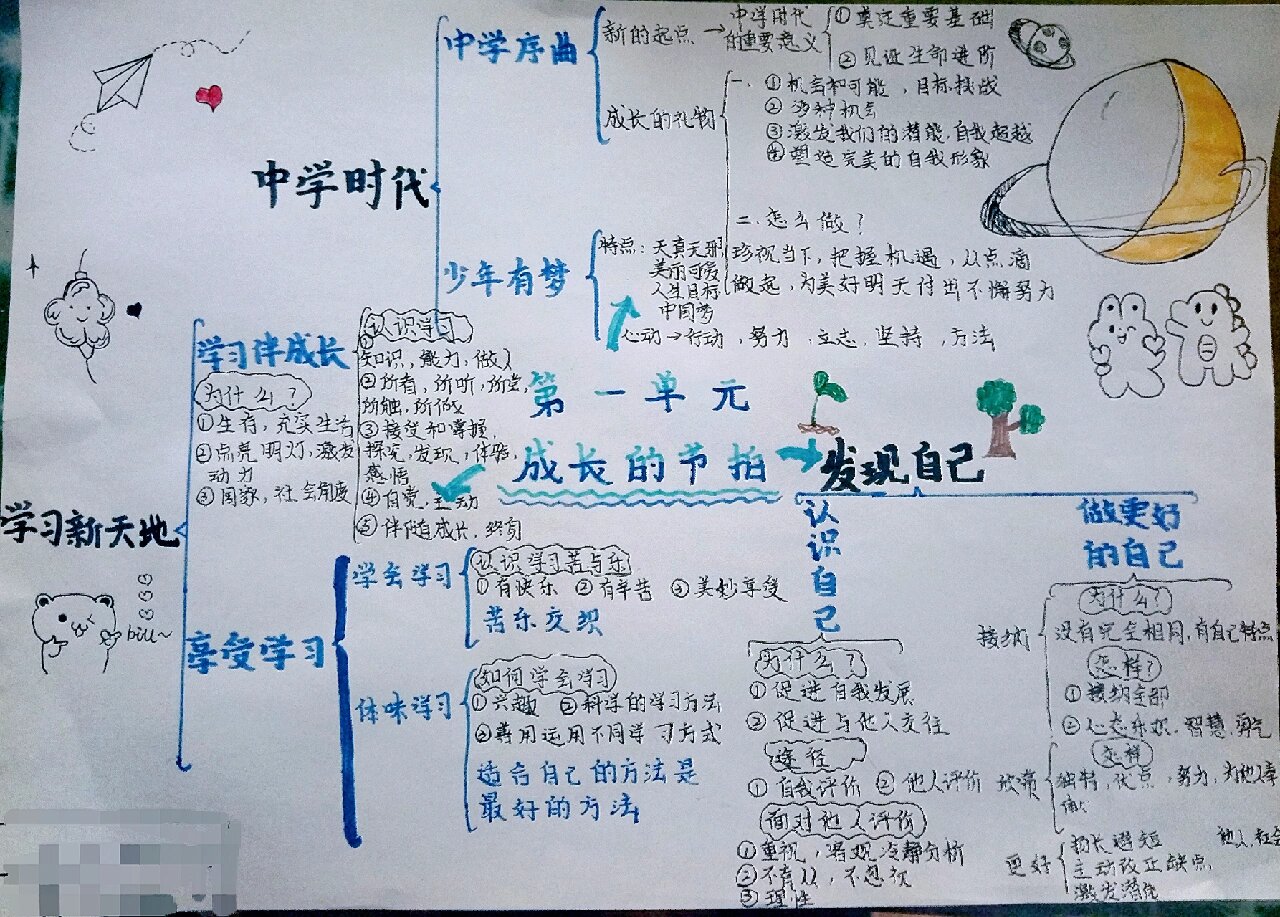 中学时代
中学序曲
新的起点→中学时代的重要意义
①奠定重要基础
②见证生命进阶
成长的礼物
一、①机会和可能,目标挑战
②多种机会
③激发我们的潜能,自我超越
④塑造完美的自我形象
二、怎么做?
珍视当下,把握机遇,从点滴
做起,为美好明天付出不懈努力
少年有梦
特点:天真无邪
美丽可爱
人生目标
中国梦
心动→行动,努力,立志,坚持,方法
第一单元
成长的节拍→发现自己
学习新天地
学习伴成长
为什么?
①生存,充实生活
②点亮明灯,激发
动力
③国家,社会角度
认识学习
①
知识,能力,做人
②所看,所听,所尝,
所触,所做
③接受和掌握,
探究,发现,体验,
感悟
④自觉,主动
⑤伴随成长,终身
享受学习
学会学习
认识学习苦与乐
①有快乐 ②有辛苦 ③美妙享受
苦乐交织
体味学习
如何学会学习
①兴趣 ②科学的学习方法
③善用运用不同学习方式
适合自己的方法是
最好的方法
biu~
认识自己
为什么?
①促进自我发展
②促进与他人交往
途径
①自我评价 ②他人评价
面对他人评价
①重视,客观冷静分析
②不盲从,不忽视
③理性
做更好
的自己
接纳
为什么?
没有完全相同,有自己特点
怎样?
①接纳全部
②心态乐观,智慧,勇气
欣赏
怎样
独特,优点,努力,为他人奉
献
更好
扬长避短
主动改正缺点
激发潜能
他人,社会